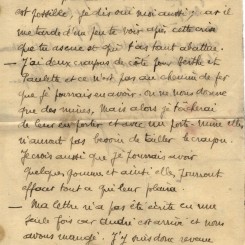 est possible, je dis oui moi aussi, car il
me tarde d'un peu te voir après cette crise
que tu as eue et qui t'as tant abattue.
— J'ai deux crayons de côté pour Berthe et
Paulette et ce n'est pas au chemin de fer
que je pourrais en avoir, on ne nous donne
que des mines. Mais alors je tâcherai
de leur en porter et avec un porte-mine elles
n'auront pas besoin de tailler le crayon.
Je crois aussi que je pourrais avoir
quelques gommes et ainsi elles pourront
effacer tout ce qui leur plaira
— Ma lettre n'a pas été écrite en une
seule fois car André est arrivé et nous
avons mangé. J'y suis donc revenu